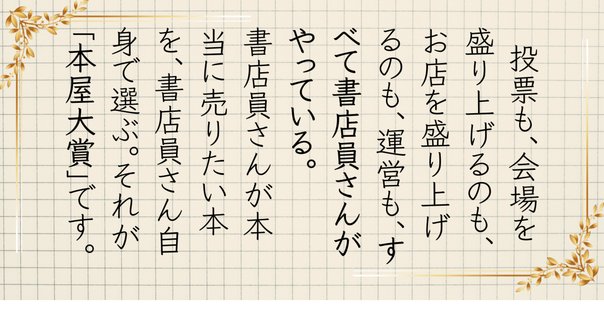 投票も、会場を
盛り上げるのも、
お店を盛り上げ
るのも、運営も、す
べて書店員さんが
やっている。
書店員さんが本
当に売りたい本
を、書店員さん自
身で選ぶ。それが
「本屋大賞」です。